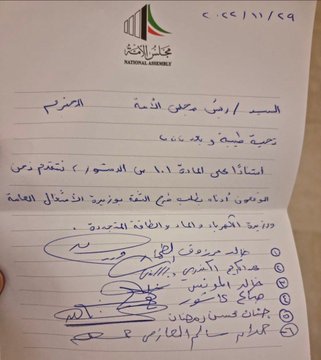 ٢٠٢٢/١١/٢٩
مجلس الأمة
NATIONAL ASSEMBLY
السيد / رئيس مجلس الأمة المحترم
تحية طيبة وبعد ،،،
استناداً على المادة ١٠١ من الدستور ، نتقدم نحن
الموقعون أدناه بطلب طرح الثقة بوزيرة الأشغال العامة
وزيرة الكهرباء والماء والطاقة المتجددة .
١
٢
٣ خالد المونس
٤ صالح عاشور
٥ جنان محسن رمضان
٦ حمدان سالم العازمي